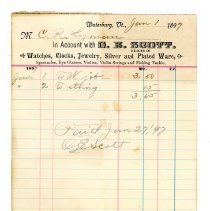 Waterbury, Vt., Jan 1 1897
M C. R. Lyman
In Account with C. E. SCOTT,
DEALER IN
Watches, Clocks, Jewelry, Silver and Plated Ware,
Spectacles, Eye Glasses, Violins, Violin Strings and Fishing Tackle.
189 DR. CR.
Jan 1 3 50
" 2 15
3 65
Paid Jan 27/97
C E Scott